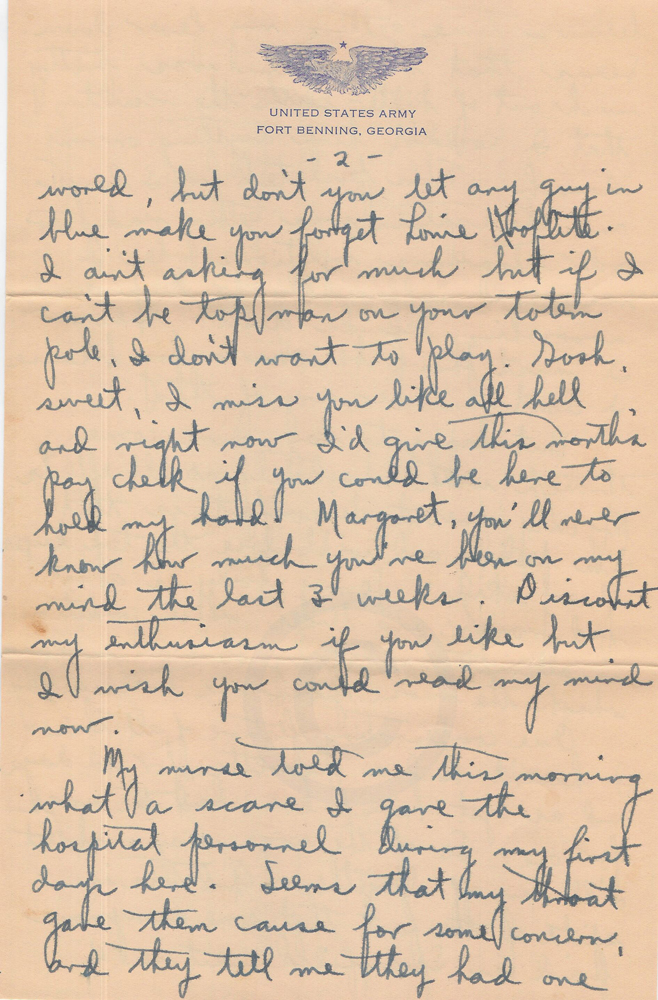 UNITED STATES ARMY
FORT BENNING, GEORGIA
- 2 -
world, but don't you let any guy in
blue make you forget Louie
I ain't asking for much but if I
can't be top man on your totem
pole, I don't want to play. Gosh,
sweet, I miss you like all hell
and right now I'd give this month's
pay check if you could be here to
hold my hand. Margaret, you'll never
know how much you've been on my
mind the last 3 weeks. Discount
my enthusiasm if you like but
I wish you could read my mind
now.
My nurse told me this morning
what a scare I gave the
hospital personnel during my first
days here. Seems that my throat
gave them cause for some concern,
and they tell me they had one